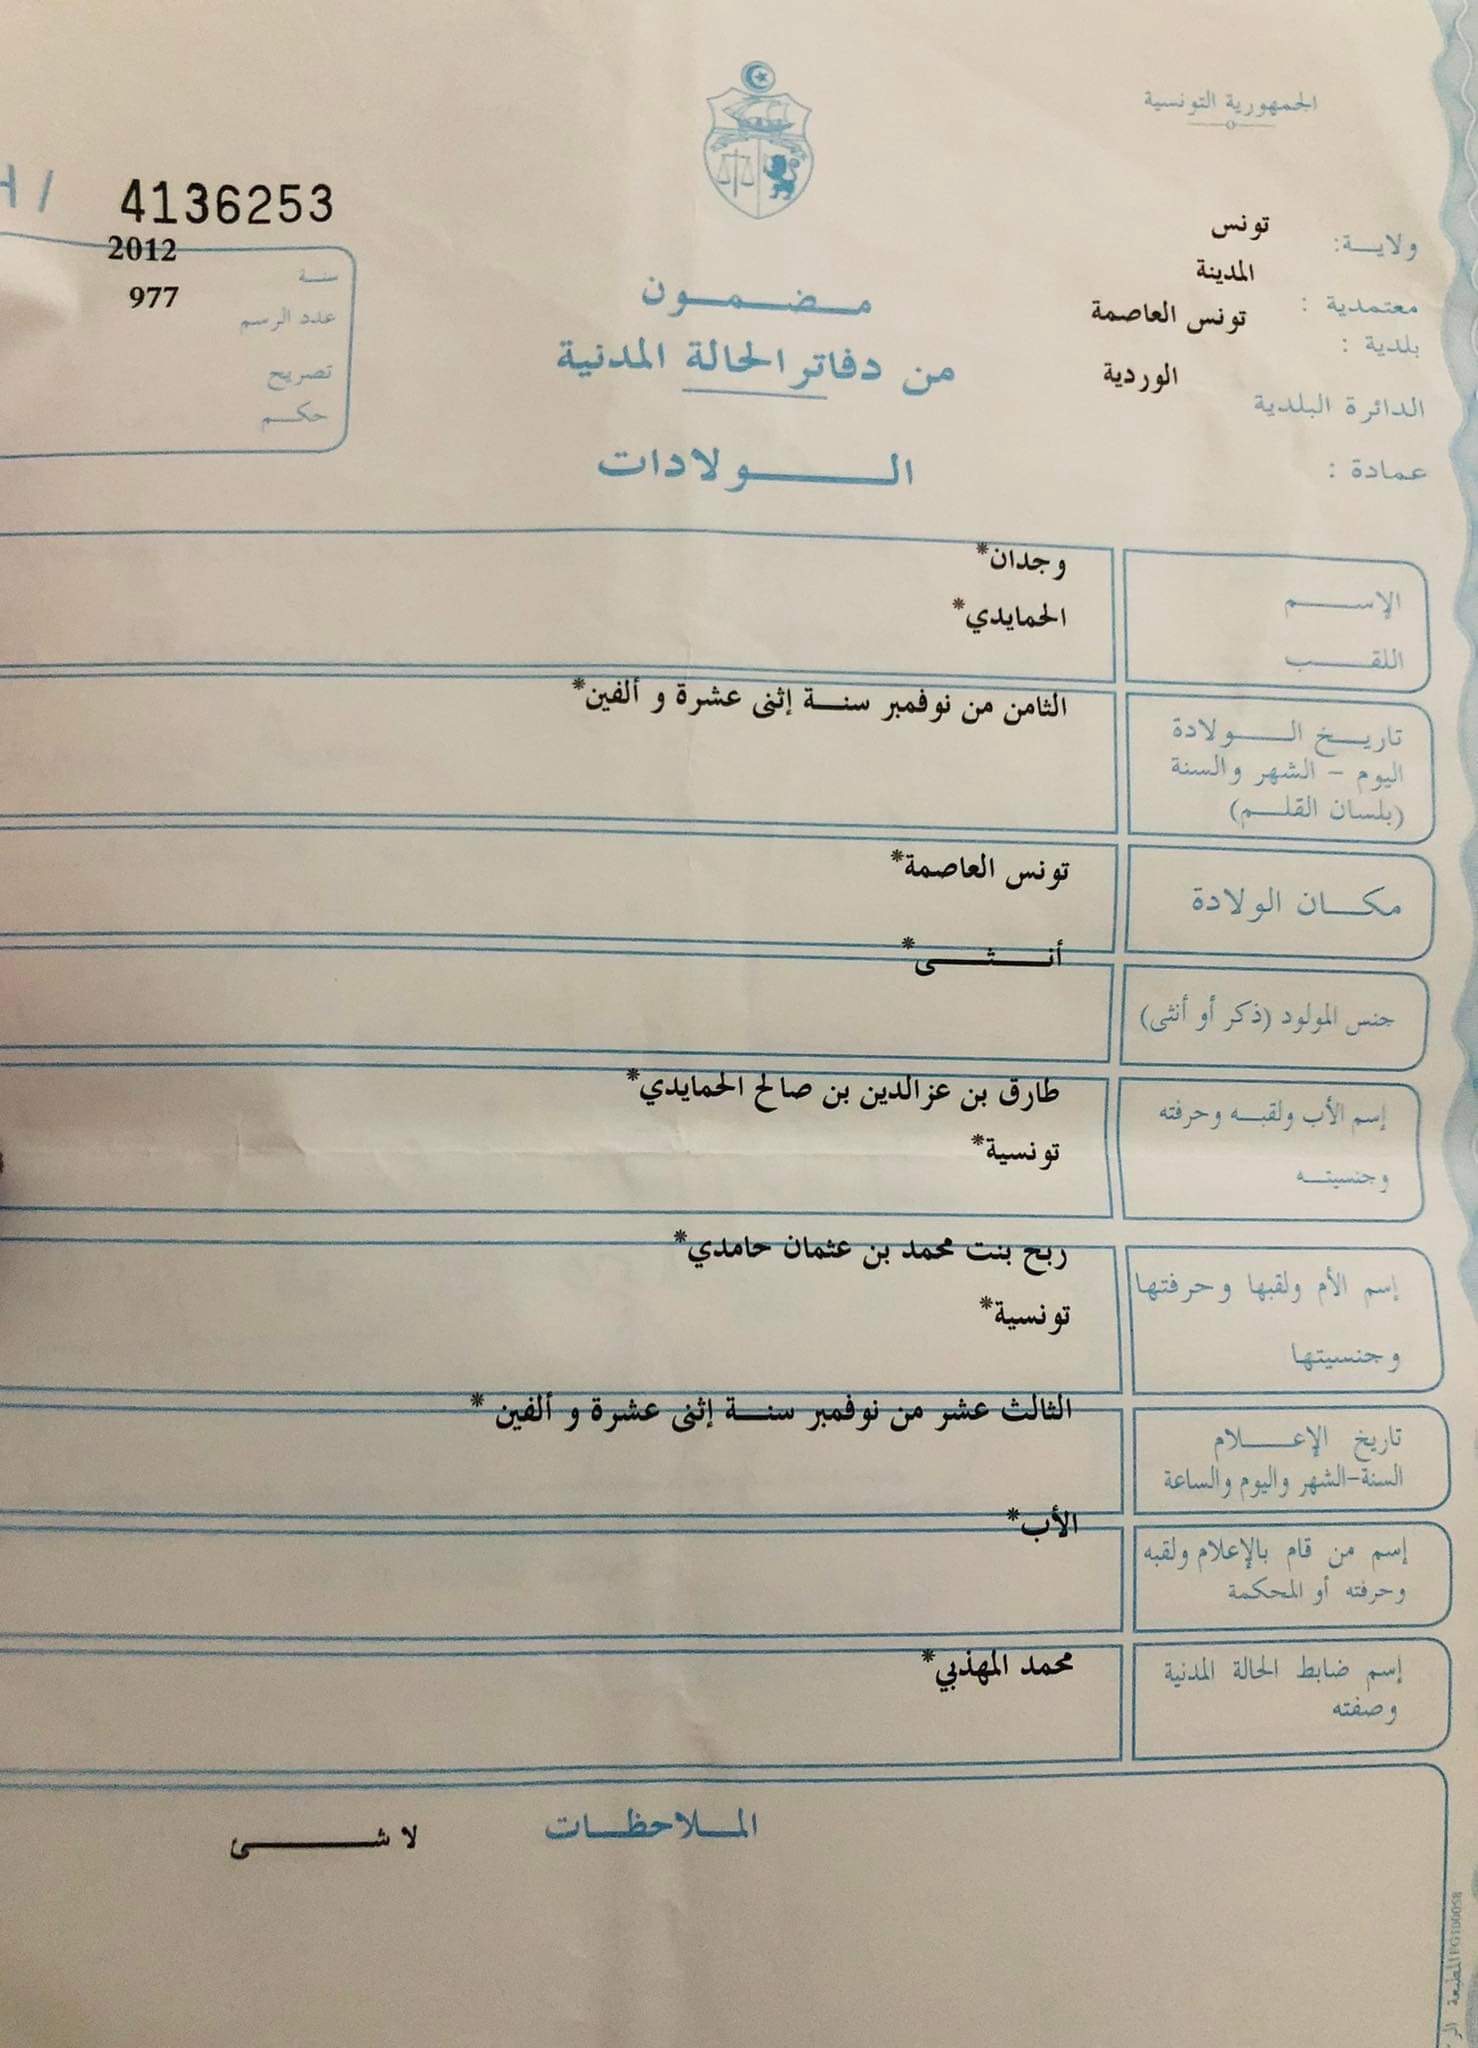 الجمهورية التونسية
ولاية: تونس
معتمدية : المدينة
بلدية : تونس العاصمة
الدائرة البلدية الوردية
عمادة :
H / 4136253
سنة 2012
عدد الرسم 977
تصريح
حكم
مضمون
من دفاتر الحالة المدنية
الولادات
الإسم وجدان*
اللقب الحمايدي*
تاريخ الولادة الثامن من نوفمبر سنة إثنى عشرة و ألفين*
اليوم - الشهر والسنة
(بلسان القلم)
مكان الولادة تونس العاصمة*
جنس المولود (ذكر أو أنثى) أنثى*
إسم الأب ولقبه وحرفته طارق بن عزالدين بن صالح الحمايدي*
وجنسيته تونسية*
إسم الأم ولقبها وحرفتها ربح بنت محمد بن عثمان حامدي*
وجنسيتها تونسية*
تاريخ الإعلام الثالث عشر من نوفمبر سنة إثنى عشرة و ألفين *
السنة-الشهر واليوم والساعة
إسم من قام بالإعلام ولقبه الأب*
وحرفته أو المحكمة
إسم ضابط الحالة المدنية محمد المهذبي*
وصفته
الملاحظات لا شئ